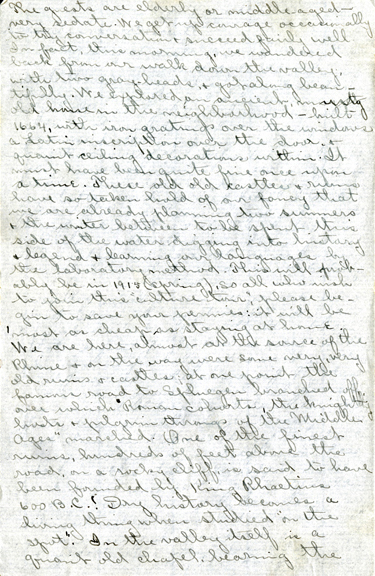 The guests are elderly or middle aged-
very sedate. We get up courage occasionally
to try conversation & succeed fairly well
In fact, this morning, we wended
back from our walk down the valley
with two grayheads, & got along beau-
tifully. We explored an ancient, musty
old house in the neighborhood - built
1664, with iron gratings over the windows
a Latin inscription over the door &
quaint ceiling decorations within. It
must have been quite fine once upon
a time. These old old castles & ruins
have so taken hold of our fancy that
we are already planning two summers
& the winter between to be spent this
side of the water digging into history
& legend & learning our languages by
the laboratory method. This will prob-
ably be in 1918 (spring), so all who wish
to join this "culture tour," please be-
gin to save your pennies: it will be
most as cheap as staying at home
We are here, almost at the source of the
Rhine & on the way were some very, very
old ruins & castles. At one point the
famous road to Splügen branched off,
over which "Roman cohorts, the Knightly
lords & pilgrim throngs of the Middle
Ages" marched. One of the finest
ruins, hundreds of feet above the
road, on a rocky cliff is said to have
been founded by King Rhaetius
600 B.C.! Dry history becomes a
living thing when studied "on the
spot". In the valley itself is a
quaint old chapel bearing the